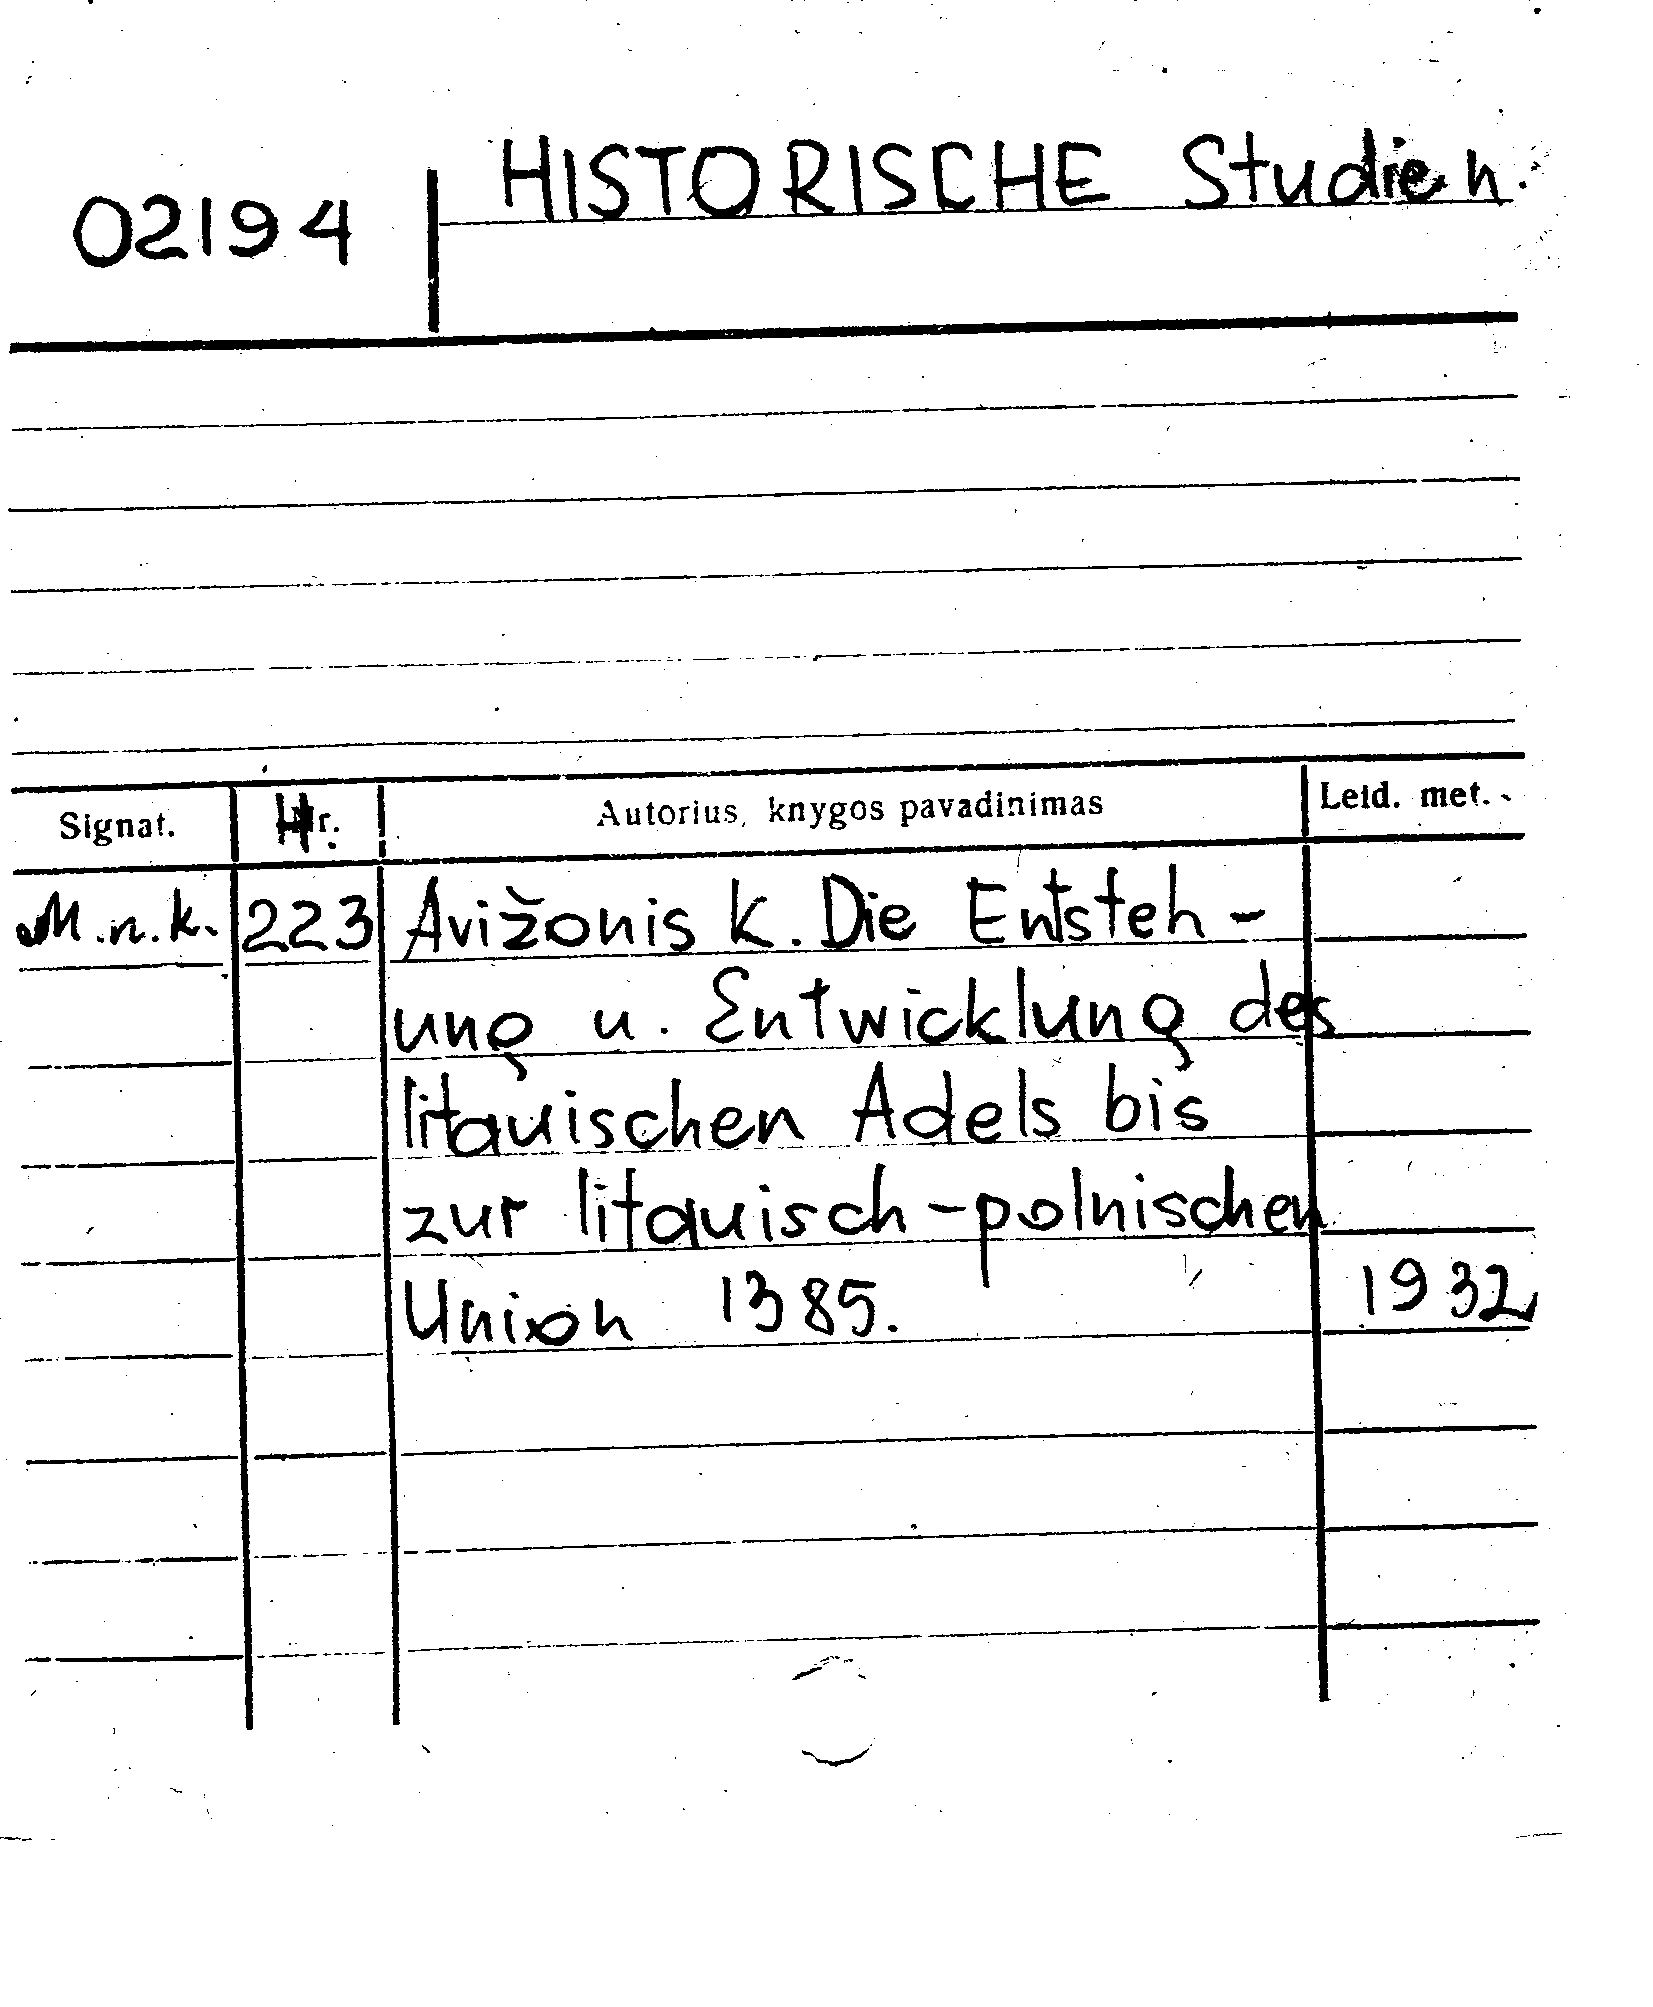 HISTORISCHE Studien.
02194
Signat. Nr. Autorius, knygos pavadinimas Leid. met.
M.n.k. 223 Avižonis K. Die Entsteh-
ung u. Entwicklung des
litauischen Adels bis
zur litauisch-polnischen
Union 1385. 1932